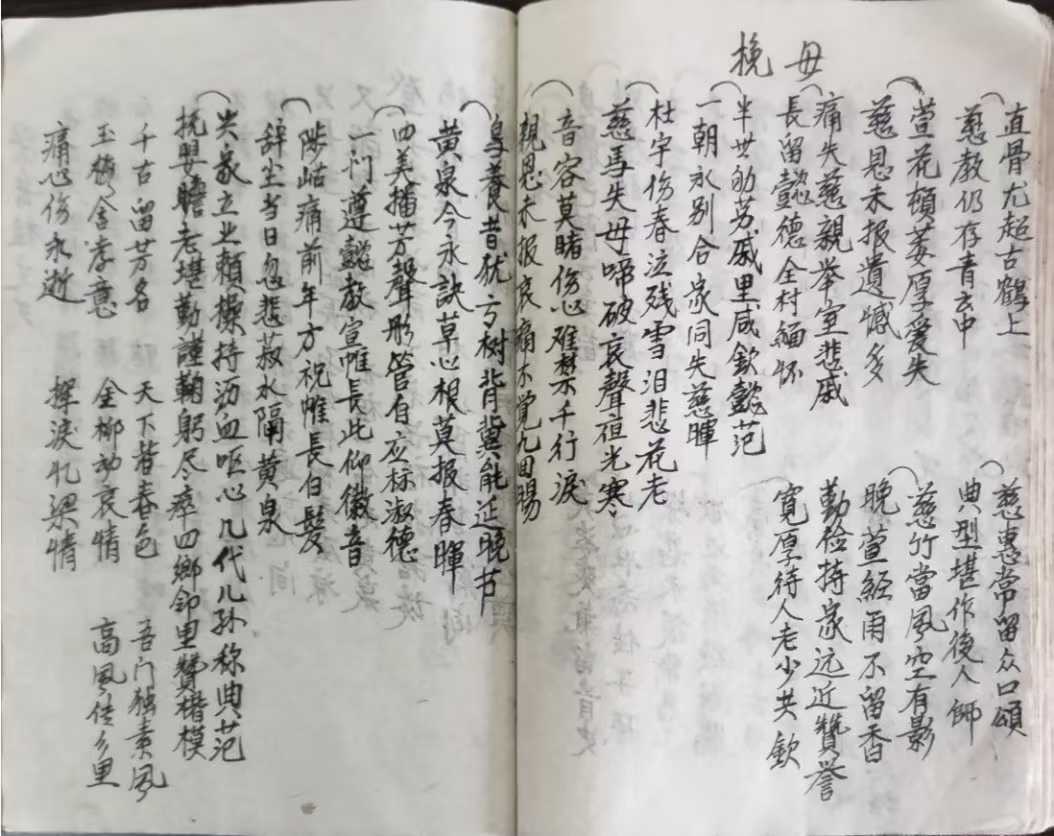 挽母
直骨尤超古鹤上
慈教仍存青玄中
萱花頓萎厚爱失
慈恩未报遺憾多
痛失慈親举室悲戚
長留懿德全村緬怀
半世劬劳戚里咸欽懿范
一朝永别合家同失慈暉
杜宇伤春泣残雪泪悲花老
慈乌失母啼破哀聲夜光寒
音容莫睹伤心难禁千行淚
親恩未报哀痛不觉九回腸
慈惠常留众口頌
典型堪作後人師
慈竹當风空有影
晚萱經雨不留香
勤俭持家远近贊誉
寬厚待人老少共欽
鸟養昔犹亏树背冀能延晚节
黄泉今永訣草心根莫报春暉
四美播芳聲彤管自应标淑德
一门遵懿教宣帷長此仰徽音
陟岵痛前年方祝帷長白髮
辞尘当日忽悲菽水隔黄泉
兴家立业賴操持沥血呕心几代儿孙称典范
抚婴瞻老堪勤謹鞠躬尽瘁四鄉邻里贊楷模
千古留芳名 天下皆春色 吾门独素风
玉梅含孝意 金柳动哀情 高风传乡里
痛心伤永逝 挥淚忆深情